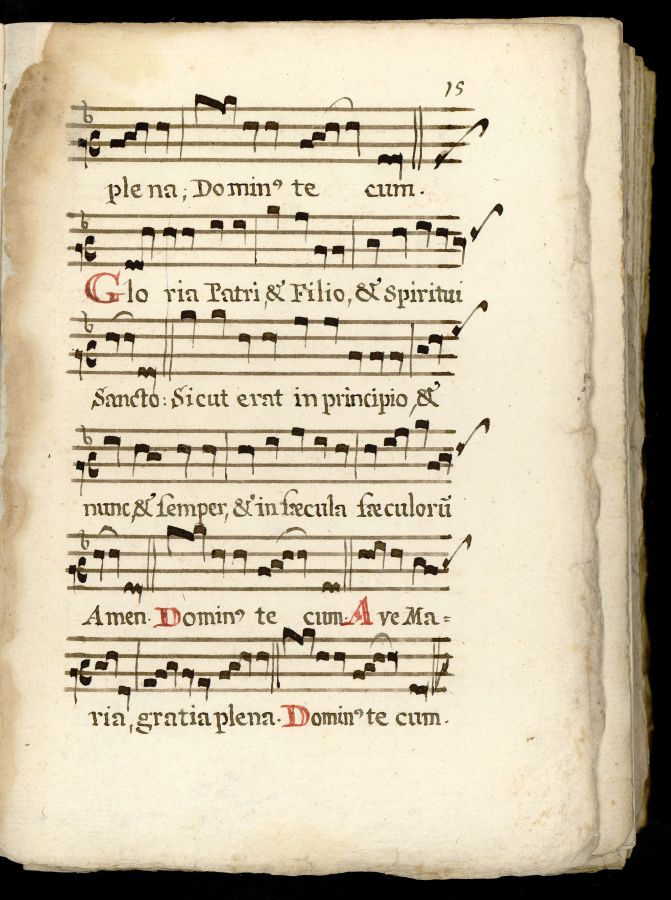 15
plena; Dominꝰ te cum.
Gloria Patri, & Filio, & Spiritui
Sancto: Sicut erat in principio, &
nunc, & ſemper, & in ſæcula ſæculorũ
Amen. Dominꝰ te cum. Ave Ma=
ria, gratia plena. Dominꝰ te cum.